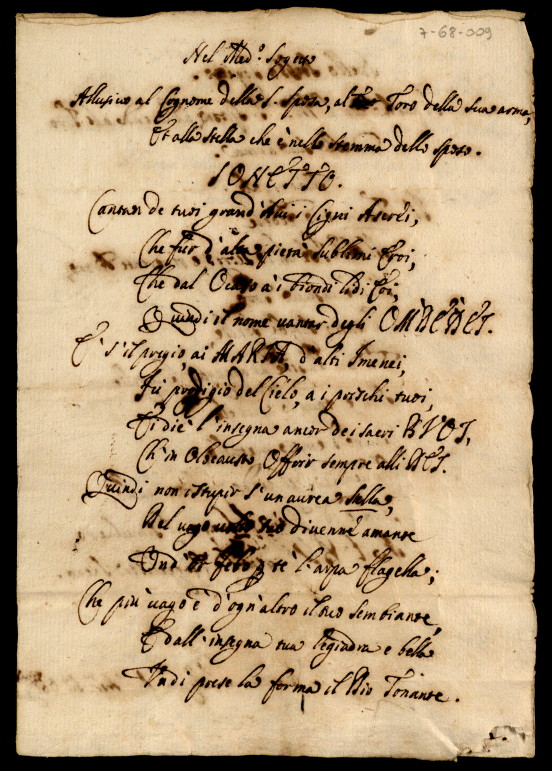 7-68-009
Nel Med.º Sogeto
Allusivo al Cognome della S. Sposa, al Toro della sua arma,
Et alla stella che è nello stemma dello sposo.
SONETTO.
Cantan de tuoi grand'Aui i Cigni Ascrei,
Che fur d'alta pietà sublimi Eroi,
Che dal Ocaso a i biondi lidi Eoi,
Quindi il nome uantar degli OMBEDEI.
E s'il pregio, ai MARIA, d'alti Imenei,
Fù prodigio del Cielo, a i prischi tuoi,
Ti diè l'insegna ancor dei sacri BVOI,
Ch'in Olocausto Offrir sempre alli DEI.
Quindi non istupir s'un aurea stella,
Del uago uolto tuo diuenne amante
Ond' Febo p te l'arpa flagella;
Che più uago è d'ogn'altro il tuo sembiante,
E dall'insegna tua legiadra e bella
Indi prese la forma il Dio Tonante.